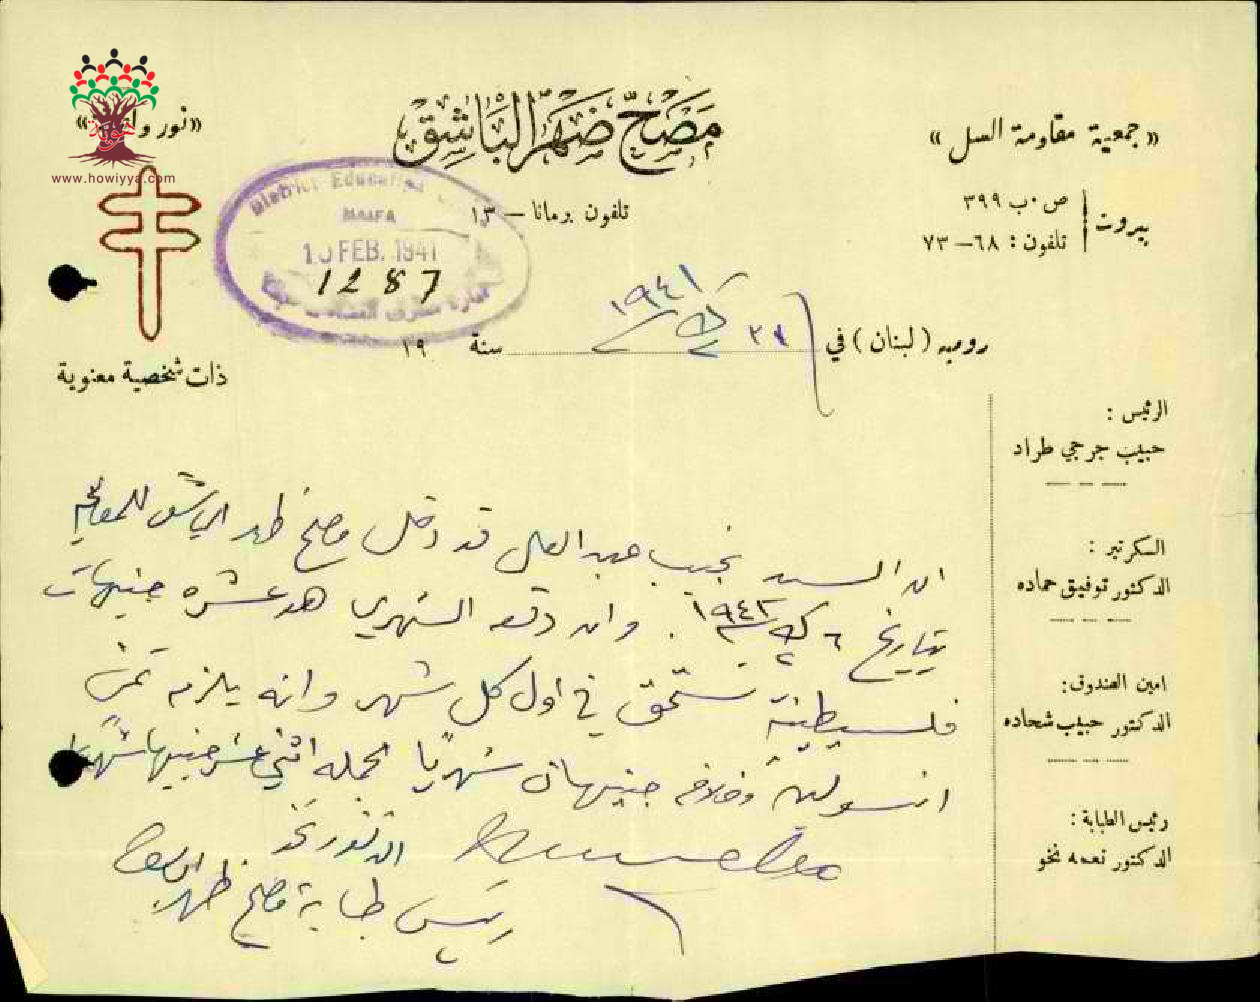 «نور و
www.howiyya.com
مَصَحّ ضَهْر البَاشِق
«جمعية مقاومة السل»
بيروت
ص٠ب ٣٩٩
تلفون : ٦٨–٧٣
تلفون برمانا – ١٣
District Education
HAIFA
10 FEB. 1941
1287
روميه ( لبنان ) في ١٩٤١ سنة ١٩
ذات شخصية معنوية
الرئيس :
حبيب جرجي طراد
السكرتير :
الدكتور توفيق حماده
امين الصندوق :
الدكتور حبيب شحاده
رئيس الطبابة :
الدكتور نعمه نخو
ان السيد نجيب عبد العال قد دخل مصح ظهر الباشق للمعالجة
بتاريخ ٦ ك٢ . وان دفعه الشهري هو عشرة جنيهات
فلسطينية تستحق في اول كل شهر وانه يلزمه ثمن
جنيهان شهريًا الجملة اثني عشر جنيها شهريا
الدكتور نخو
رئيس طبابة مصح ظهر الباشق